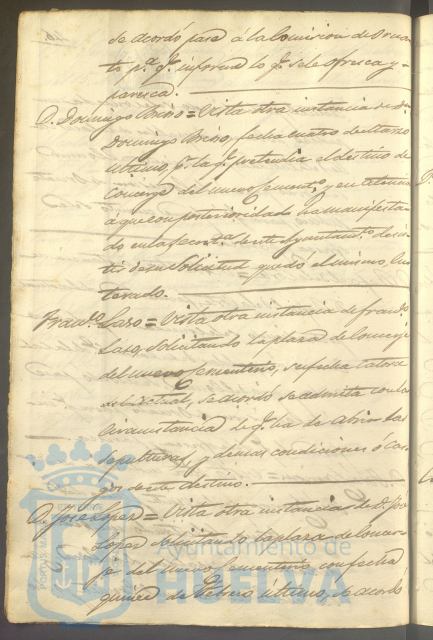 se acordó pase á la Comision de Orna-
to pa. qe. informe lo qe. se le ofresca y
paresca.
D. Domingo Briso = Vista otra instancia de Dn.
Domingo Briso, fecha cuatro de Marzo
ultimo, pr. la qe. pretendia el destino de
Concerge del nuevo Sementº. y en atencion
á que con posterioridad ha manifesta-
do en la Secretª. de este Ayuntamtº. desis-
tir de su Solicitud quedó el mismo, en-
terado.
Francº. Laso = Vista otra instancia de Francº.
Laso, solicitando la plaza de Concerge
del nuevo Sementerio, su fecha
del actual, se acordó se admita con la
circunstancia de qe. ha de abrir las
sepulturas, y demas condiciones ó car-
gos de este destino.
D. José Lopez = Vista otra instancia de D. José
Lopez solicitando la plaza de Concer-
je del nuevo Sementerio con fecha
quince de Febrero último, se acordó
Ayuntamiento de
HUELVA